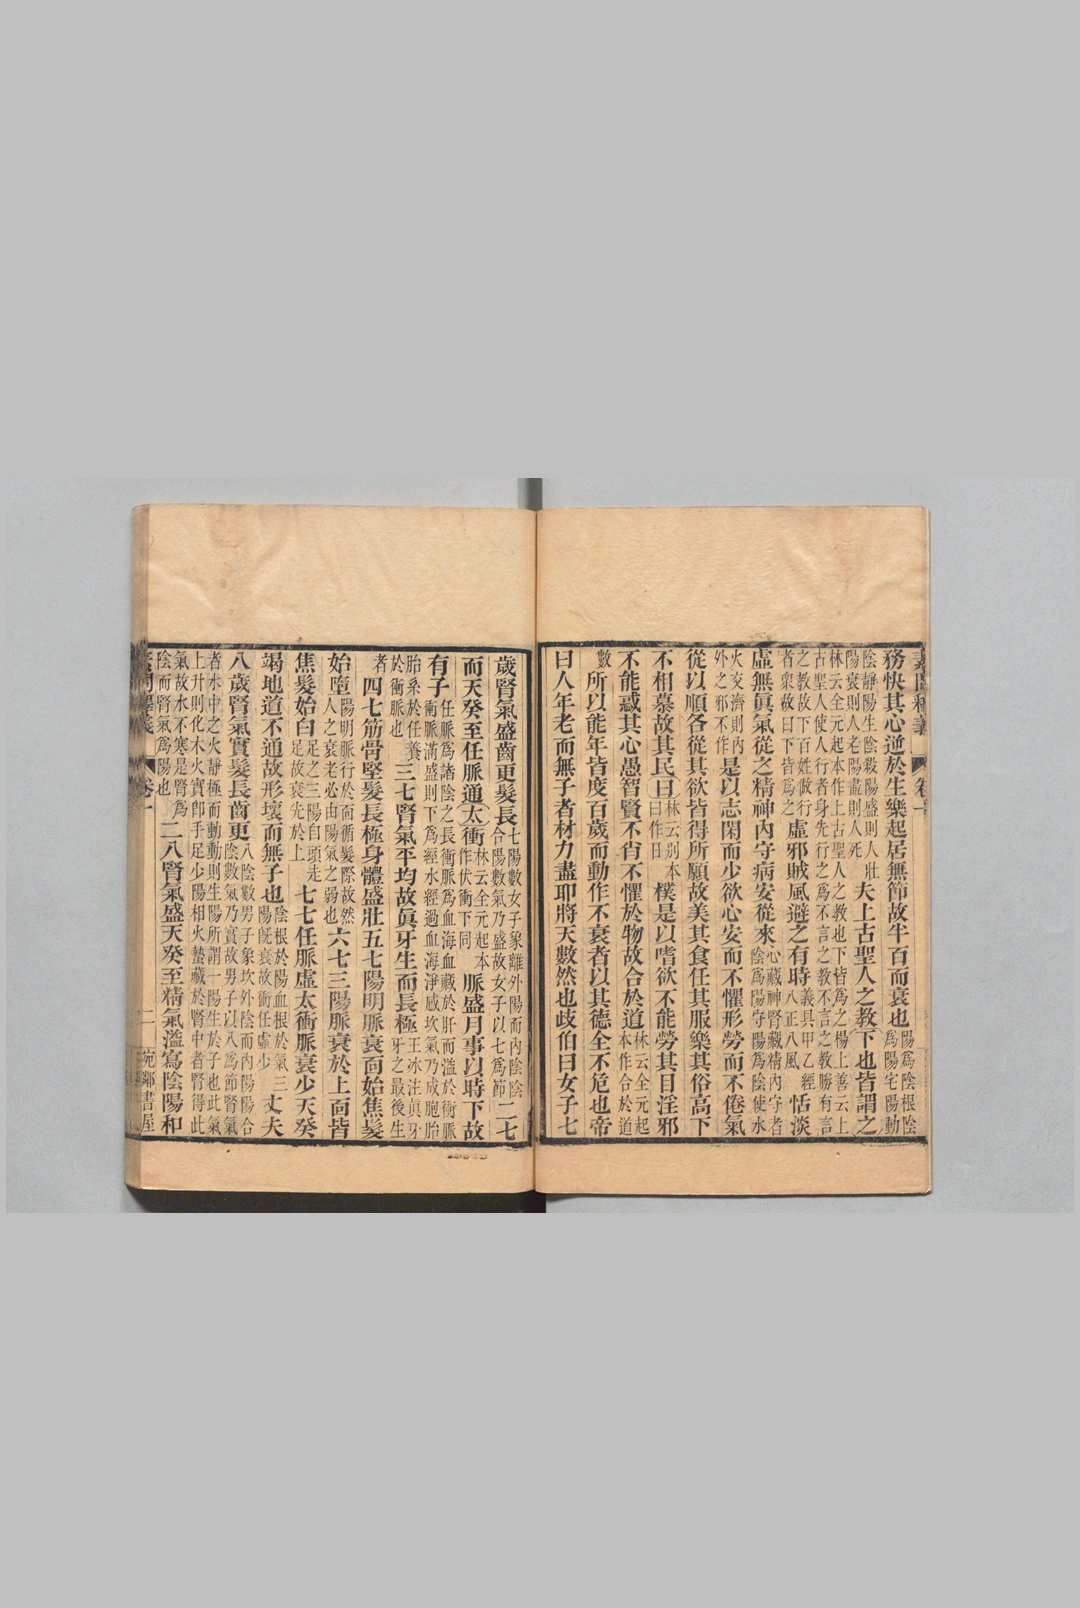 務快其心逆於生樂起居無節故半百而衰也陽爲陰根陰爲陽宅陽動
陰靜陽生陰殺陽盛則人壯陽衰則人老陽盡則人死夫上古聖人之教下也皆謂之
林云全元起本作上古聖人之教也下皆爲之楊上善云上古聖人使人行者身先行之爲不言之教不言之教勝有言
之教故下百姓倣行者衆故曰下皆爲之虛邪賊風避之有時八正八風義具甲乙經恬淡
虛無眞氣從之精神內守病安從來心藏神腎藏精內守者陰爲陽守陽爲陰使水
火交濟則內外之邪不作是以志閑而少欲心安而不懼形勞而不倦氣
從以順各從其欲皆得所願故美其食任其服樂其俗高下
不相慕故其民曰林云别本曰作日樸是以嗜欲不能勞其目淫邪
不能惑其心愚智賢不肖不懼於物故合於道林云全元起本作合於道
數所以能年皆度百歲而動作不衰者以其德全不危也帝
曰人年老而無子者材力盡耶將天數然也歧伯曰女子七
歲腎氣盛齒更髮長七陽數女子象離外陽而內陰陰合陽數氣乃盛故女子以七爲節二七
而天癸至任脈通太衝林云全元起本作伏衝下同脈盛月事以時下故
有子任脈爲諸陰之長衝脈爲血海血藏於肝而溢於衝脈衝脈滿盛則下爲經水經過血海淨感坎氣乃成胞胎
胎系於任養於衝脈也三七腎氣平均故眞牙生而長極王冰注眞牙牙之最後生
者四七筋骨堅髮長極身體盛壯五七陽明脈衰面始焦髮
始墮陽明脈行於面循髮際故然人之衰老必由陽氣之弱也六七三陽脈衰於上面皆
焦髮始白足之三陽自頭走足故衰先於上七七任脈虛太衝脈衰少天癸
竭地道不通故形壞而無子也陰根於陽血根於氣三陽旣衰故衝任虛少丈夫
八歲腎氣實髮長齒更八陰數男子象坎外陰而內陽陽合陰數氣乃實故男子以八爲節腎氣
者水中之火靜極而動動則生陽所謂一陽生於子也此氣上升則化木火實卽手足少陽相火蟄藏於腎中者腎得此
氣故水不寒是腎爲陰而腎氣爲陽也二八腎氣盛天癸至精氣溢寫陰陽和
素問釋義
卷一
二
宛鄰書屋